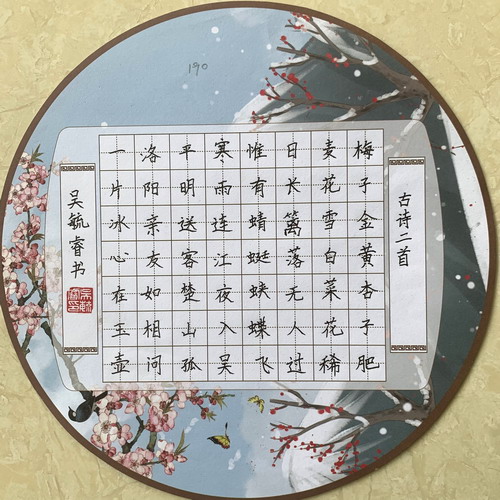 190
古诗二首
梅子金黄杏子肥
麦花雪白菜花稀
日长篱落无人过
惟有蜻蜓蛱蝶飞
寒雨连江夜入吴
平明送客楚山孤
洛阳亲友如相问
一片冰心在玉壶
吴毓睿书